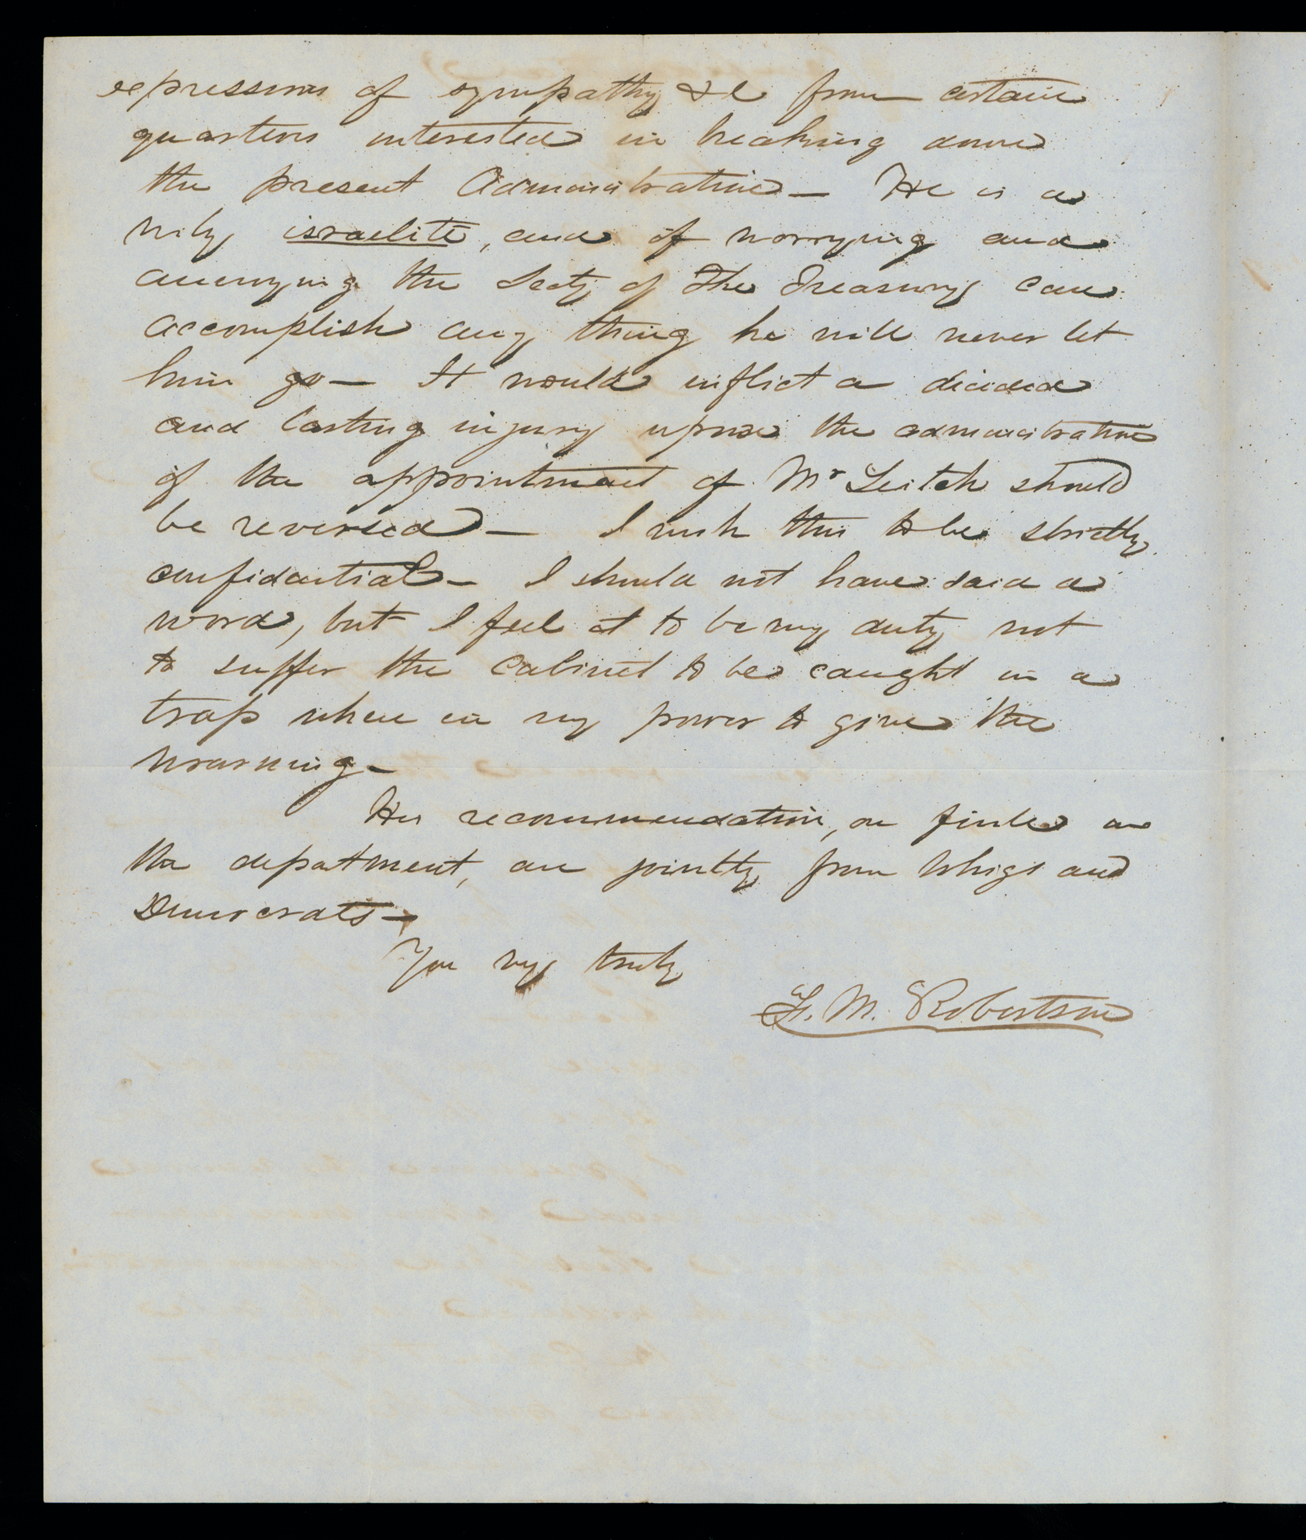 expressions of sympathy &c from certain
quarters interested in breaking down
the present Administration — He is a
wily israelite, and if worrying and
annoying the Secty of The Treasury can
accomplish any thing he will never let
him go — It would inflict a decided
and lasting injury upon the administration
if the appointment of Mr Leitch should
be reversed — I wish this to be strictly
confidential — I should not have said a
word, but I feel it to be my duty not
to suffer the Cabinet to be caught in a
trap when in my power to give the
warning —
His recommendation, on in
the department, are jointly from Whigs and
Democrats —
You vry truly
M. Robertson